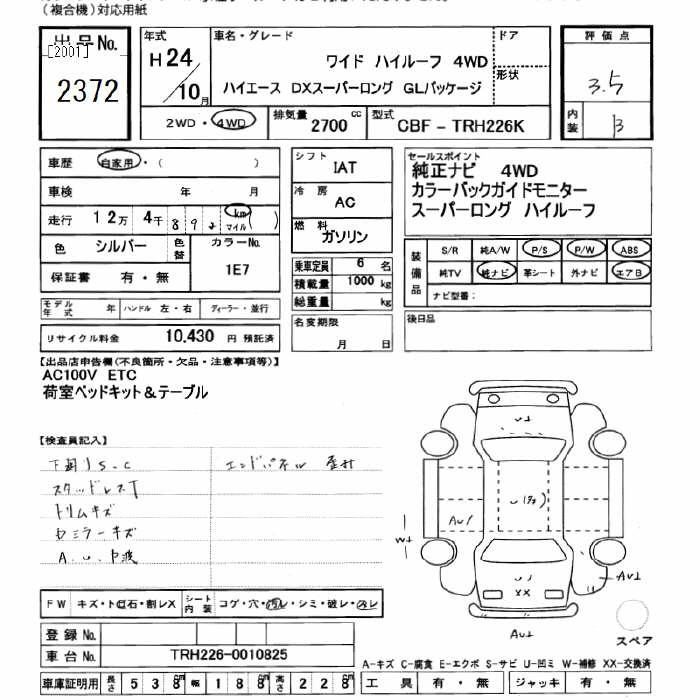 (複合機)対応用紙
出品No.
[2001]
2372
年式
H 24/10月
車名・グレード
ワイド ハイルーフ 4WD
ハイエース DXスーパーロング GLパッケージ
ドア
形状
2WD・4WD
排気量 2700 cc
型式 CBF-TRH226K
評価点
3.5
内装 B
車歴 自家用・( )
車検 年 月
走行 12万 4千 892 km マイル ( )
色 シルバー
色替
カラーNo.
1E7
保証書 有・無
シフト
IAT
冷房
AC
燃料
ガソリン
乗車定員 6 名
積載量 1000 kg
総重量 kg
名変期限
月 日
セールスポイント
純正ナビ 4WD
カラーバックガイドモニター
スーパーロング ハイルーフ
装備品
S/R 純A/W P/S P/W ABS
純TV 純ナビ 革シート 外ナビ エアB
ナビ型番:
後日品
モデル年式 年 ハンドル 左・右 ディーラー・並行
リサイクル料金 10,430 円 預託済
【出品店申告欄(不良箇所・欠品・注意事項等)】
AC100V ETC
荷室ベッドキット&テーブル
【検査員記入】
下廻りS.C
エンドパネル 歪村
スタッドレスT
トリムキズ
ミラーキズ
A.U.P波
AU1
W1
AU1
AU1
XX
FW キズ・ト凸石・割レX
シート内装 コゲ・穴・汚レ・シミ・破レ・汚レ
登録No.
車台No. TRH226-0010825
車庫証明用 長さ 538cm 幅 188cm 高さ 228cm
スペア
A-キズ C-腐食 E-エクボ S-サビ U-凹ミ W-補修 XX-交換済
工具 有・無 ジャッキ 有・無